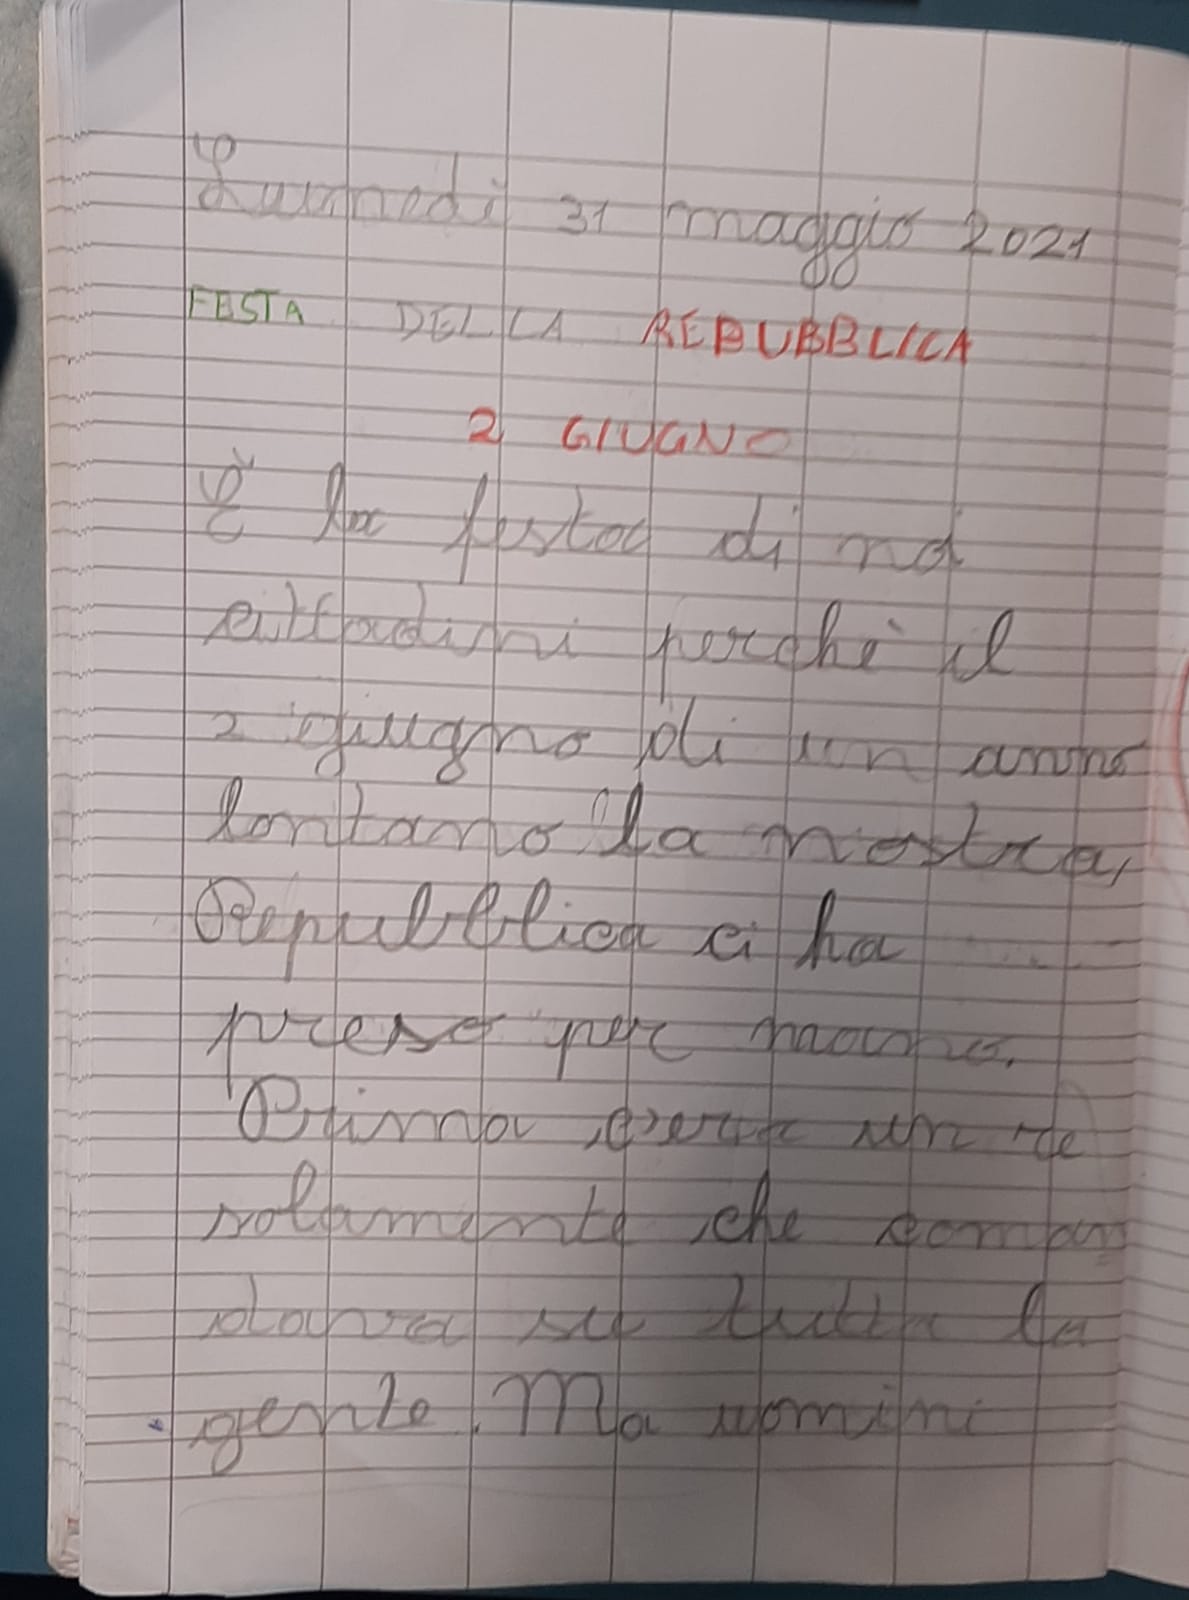 Lunedì 31 maggio 2021
FESTA DELLA REPUBBLICA
2 GIUGNO
È la festa di noi
cittadini perchè il
2 giugno di un anno
lontano la nostra
Repubblica ci ha
preso per mano.
Prima c'era un re
solamente che coman
dava su tutta la
gente. Ma uomini